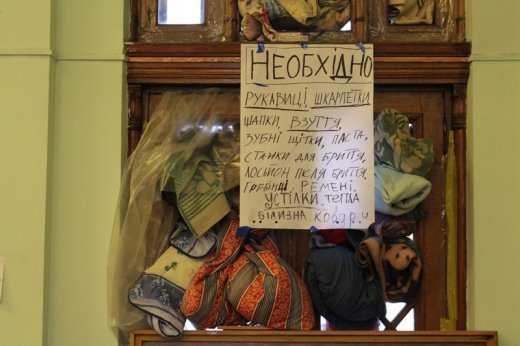 НЕОБХІДНО
РУКАВИЦІ, ШКАРПЕТКИ
ШАПКИ, ВЗУТТЯ,
ЗУБНІ ЩІТКИ, ПАСТА,
СТАНКИ ДЛЯ БРИТТЯ,
ЛОСЙОН ПІСЛЯ БРИТТЯ,
ГРЕБІНЦІ, РЕМЕНІ,
УСТІЛКИ, ТЕПЛА
БІЛИЗНА, КОВДРИ